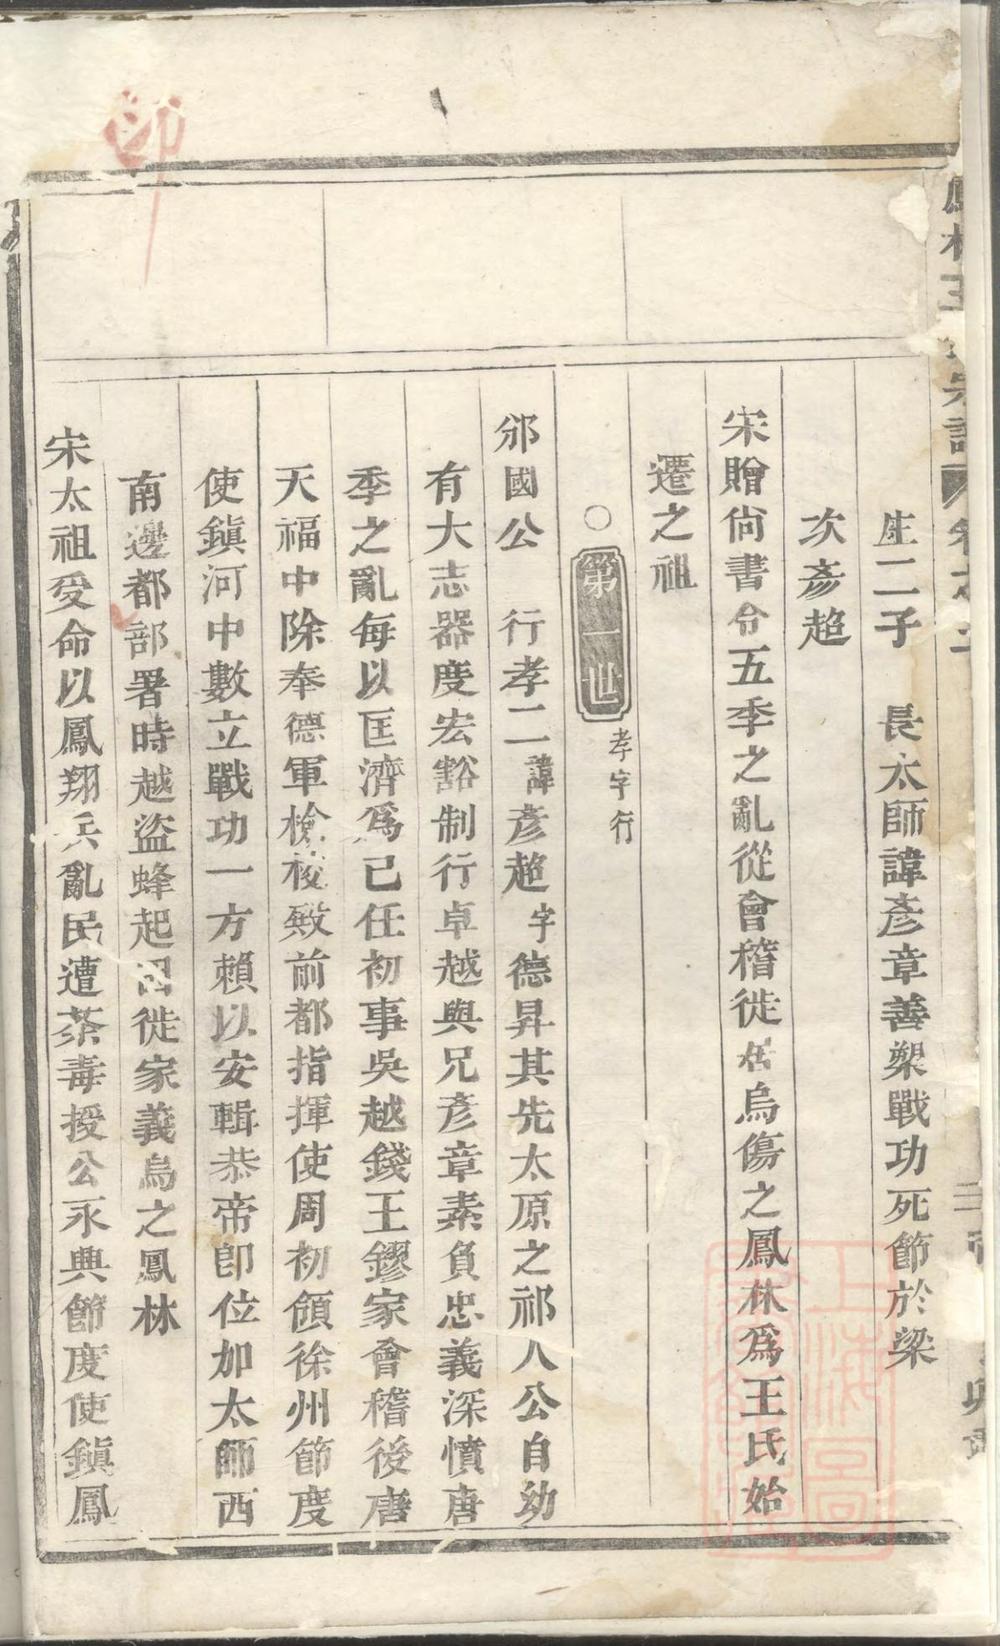 生二子　長太師諱彥章善槊戰功死節於梁
次彥超
宋贈尙書令五季之亂從會稽徙居烏傷之鳳林爲王氏始
遷之祖
○第一世 孝字行
邠國公　行孝二諱彥超字德昇其先太原之祁人公自幼
有大志器度宏豁制行卓越與兄彥章素負忠義深憤唐
季之亂每以匡濟爲己任初事吳越錢王鏐家會稽後唐
天福中除奉德軍檢校殿前都指揮使周初領徐州節度
使鎭河中數立戰功一方賴以安輯恭帝卽位加太師西
南邊都部署時越盜蜂起因徙家義烏之鳳林
宋太祖受命以鳳翔兵亂民遭荼毒授公永興節度使鎭鳳